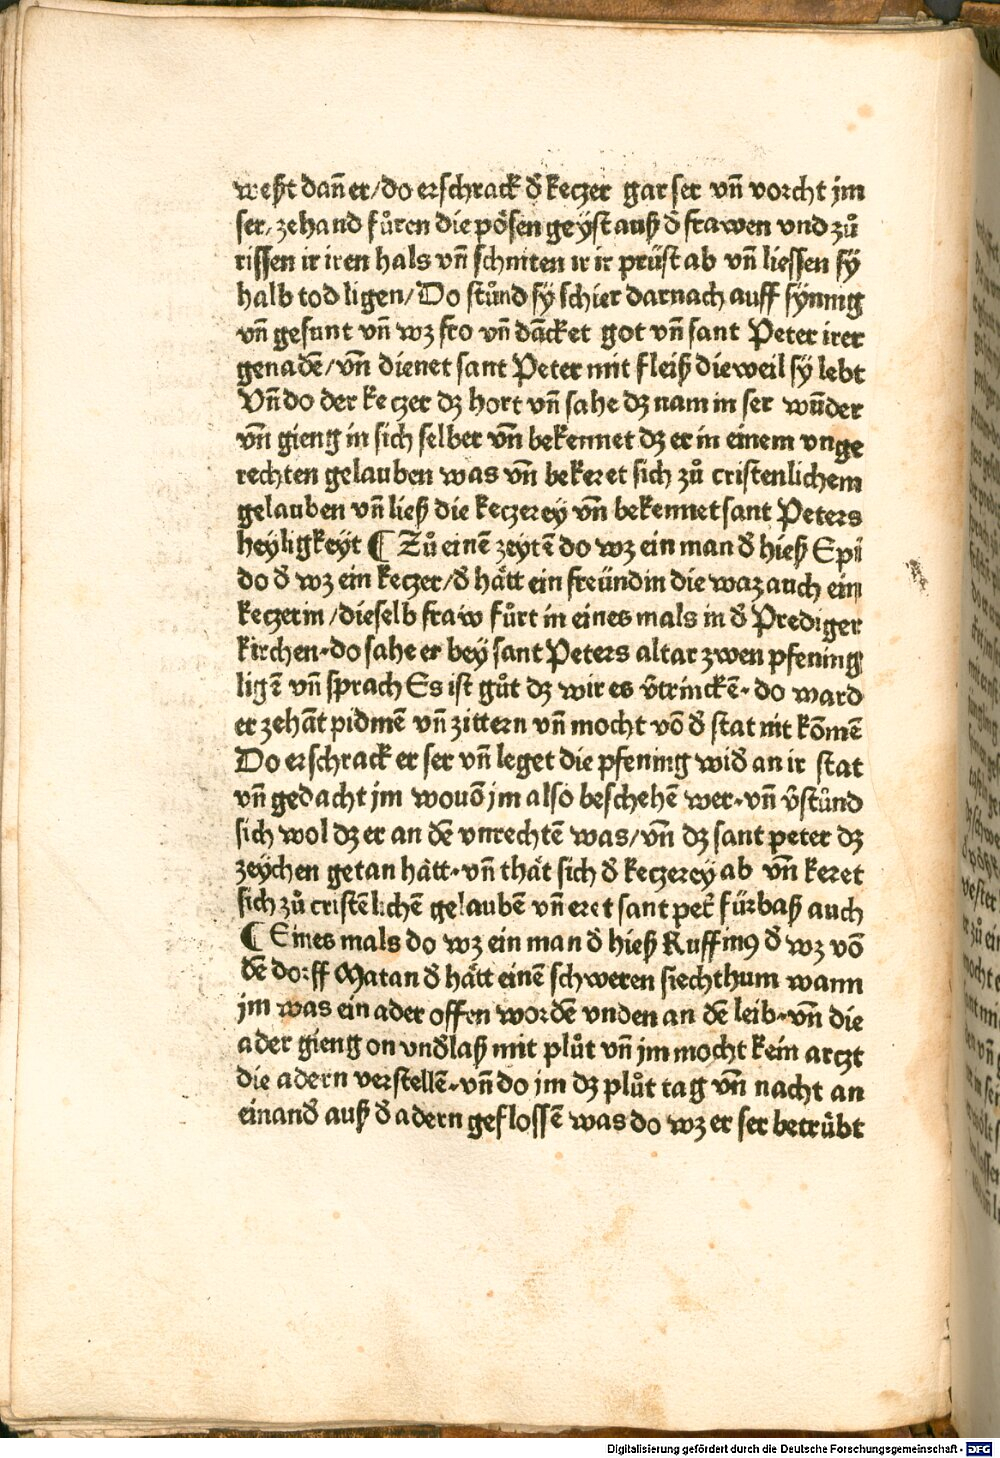 weßt dañ er/do erschrack đ keczer gar ser vñ vorcht jm
ser/zehand fůren die pösen geÿst auß đ frawen vnd zů
rissen ir iren hals vñ schniten ir ir prüst ab vñ liessen sÿ
halb tod ligen/Do stůnd sÿ schier darnach auff sÿnnig
vñ gesunt vñ wz fro vñ dācket got vñ sant Peter irer
genadē/vñ dienet sant Peter mit fleiß die weil sÿ lebt
Vñ do der keczer dz hort vñ sahe dz nam in ser wūder
vñ gieng in sich selber vñ bekennet dz er in einem vnge
rechten gelauben was vñ bekeret sich zů cristenlichem
gelauben vñ ließ die keczerey vñ bekennet sant Peters
heyligkeyt ¶ Zů einē zeytē do wz ein man đ hieß Epi
do đ wz ein keczer/đ hätt ein freündin die waz auch ein
keczerin/dieselb fraw fůrt in eines mals in đ Prediger
kirchen·do sahe er beÿ sant Peters altar zwen pfening
ligē vñ sprach Es ist gůt dz wir es v̄trinckē·do ward
er zehāt pidmē vñ zittern vñ mocht vō đ stat nit kōmē
Do erschrack er ser vñ leget die pfening wiđ an ir stat
vñ gedacht jm wouō jm also beschehē wer·vñ v̄stůnd
sich wol dz er an dē vnrechtē was/vñ dz sant peter dz
zeÿchen getan hätt·vñ thät sich đ keczerey ab vñ keret
sich zů cristēlichē gelaubē vñ eret sant pet̄ fürbaß auch
¶ Eines mals do wz ein man đ hieß Ruffinꝰ đ wz vō
dē dorff Matan đ hätt einē schweren siechthum wann
jm was ein ader offen wordē vnden an dē leib·vñ die
ader gieng on vnđlaß mit plůt vñ jm mocht kein arczt
die adern verstellē·vñ do jm dz plůt tag vñ nacht an
einanđ auß đ adern geflossē was do wz er ser betrübt
Digitalisierung gefördert durch die Deutsche Forschungsgemeinschaft - DFG